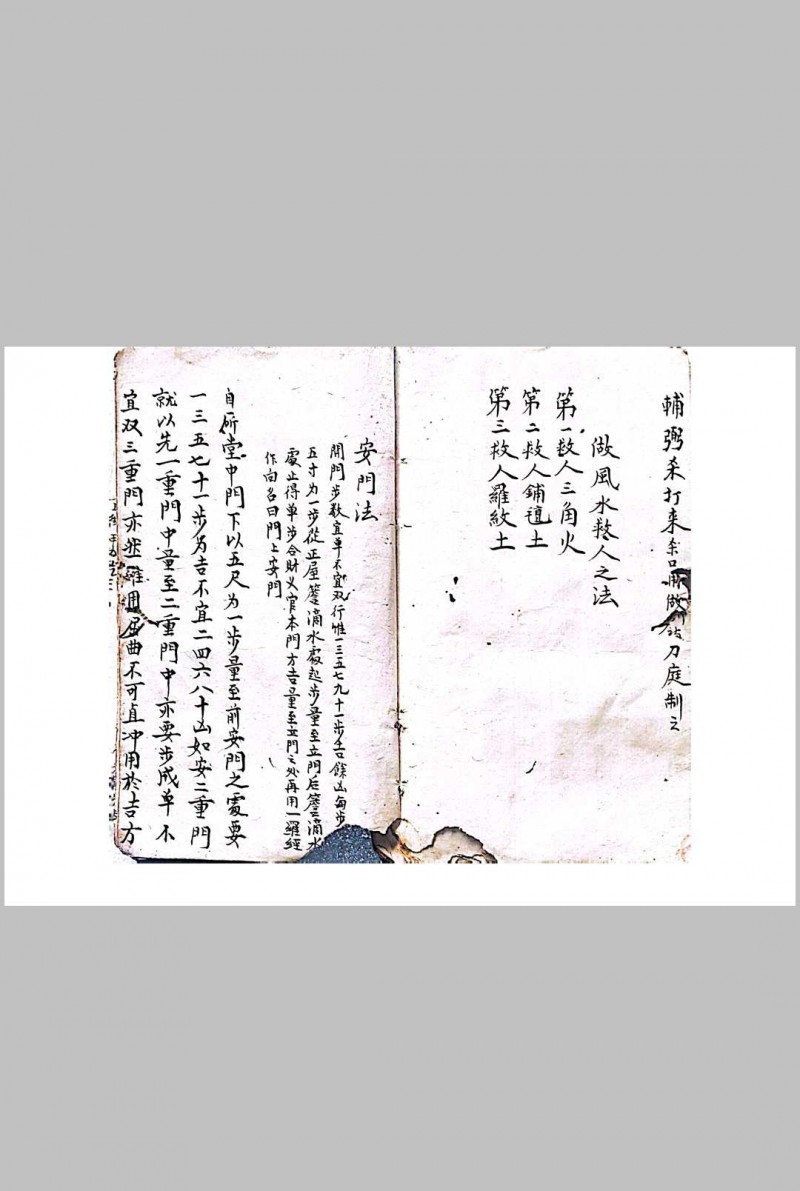 輔弼杀打来
刀庭制之
做風水救人之法
第一救人三角火
第二救人鋪氊土
第三救人羅紋土
安門法
開門步数宜单不宜双行惟一三五七九十一步吉餘凶每步
五寸为一步從正屋簷滴水處起步量至立門后簷滴水
處止得单步合財义官本門方吉量至立門之处再用一羅經
作向名曰門上安門
自所堂中門下以五尺为一步量至前安門之處要
一三五七十一步为吉不宜二四六八十凶如安二重門
就以先一重門中量至二重門中亦要步成单不
宜双三重門亦然 屈曲不可直冲用於吉方